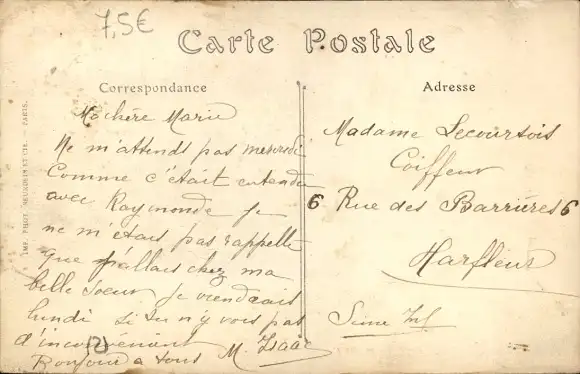 7,5€
Carte Postale
Correspondance
Ma chère Marie
Ne m'attends pas mercredi
comme c'était entendu
avec Raymonde je
ne m'étais pas rappellé
que j'allais chez ma
belle soeur je viendrais
lundi si tu n'y vois pas
d'inconvénient
Bonjour a tous M. Isaac
Adresse
Madame Lecourtois
Coiffeur
6 Rue des Barrières 6
Harfleur
Seine Inf
IMP. PHOT. NEURDEIN ET CIE. PARIS.